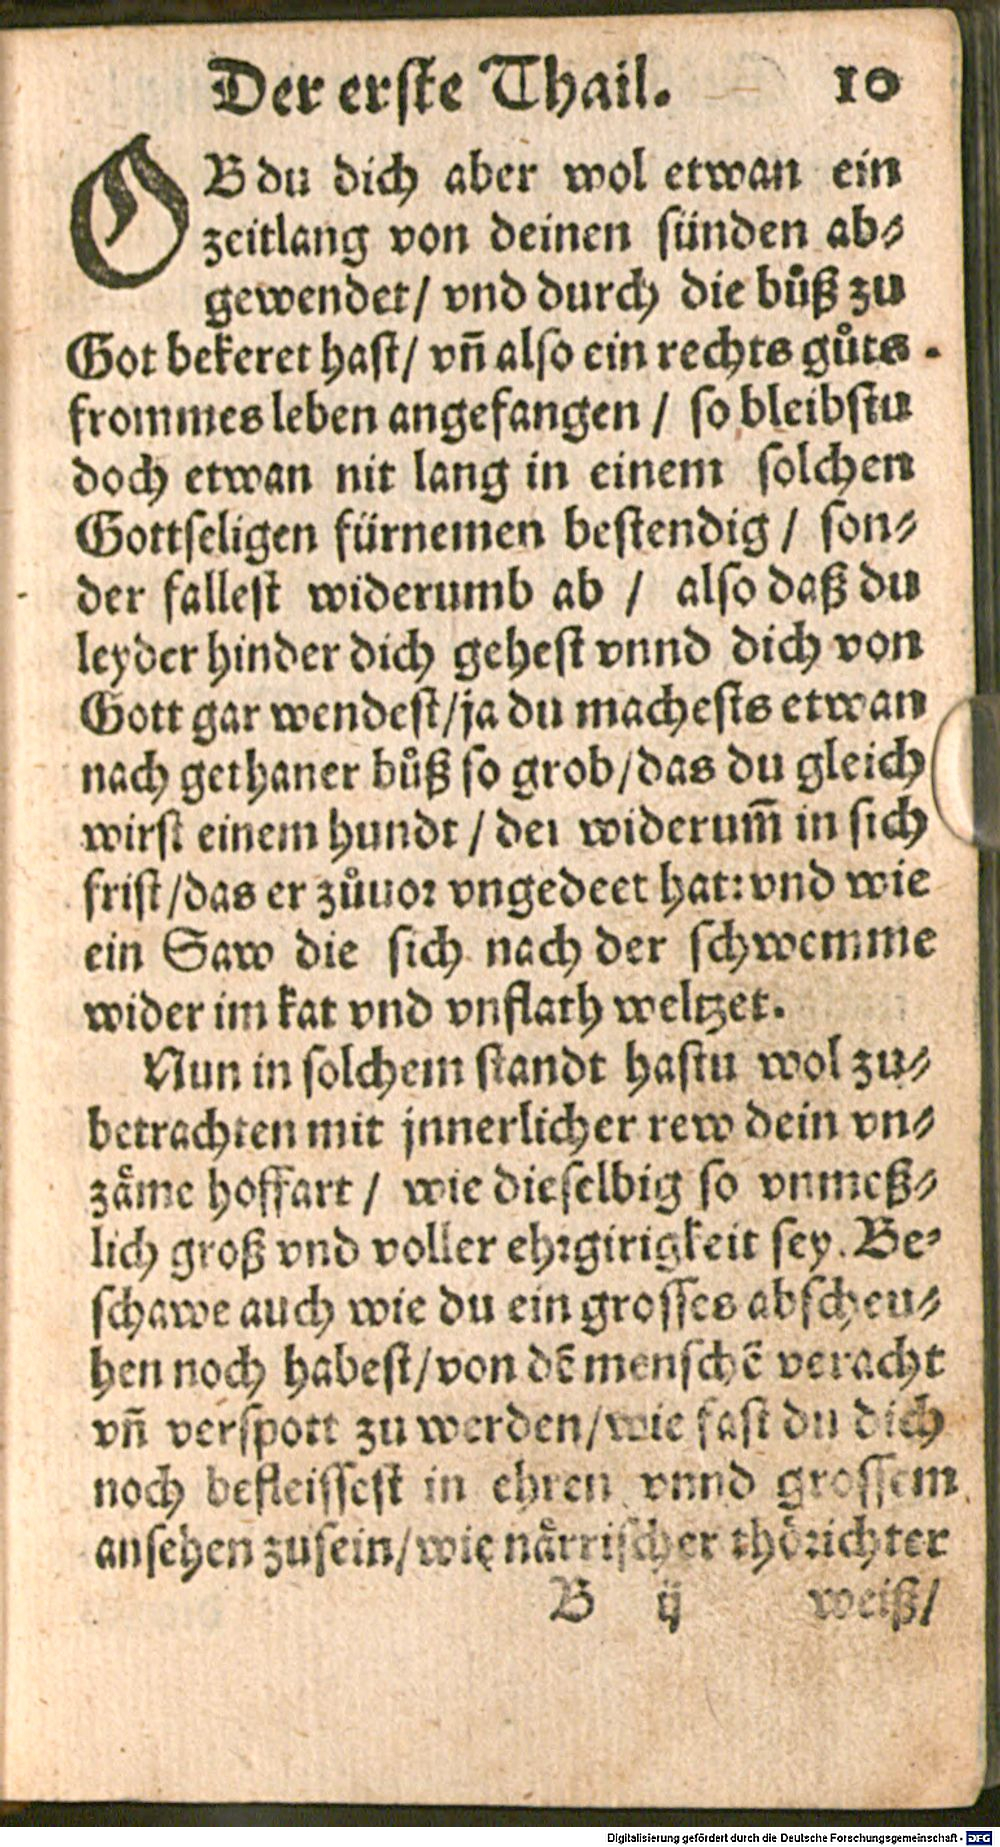 Der erste Thail. 10
OB du dich aber wol etwan ein
zeitlang von deinen sünden ab⸗
gewendet/ vnd durch die bůß zu
Got bekeret hast/ vñ also ein rechts gůts
frommes leben angefangen / so bleibstu
doch etwan nit lang in einem solchen
Gottseligen fürnemen bestendig / son⸗
der fallest widerumb ab / also daß du
leyder hinder dich gehest vnnd dich von
Gott gar wendest/ja du machests etwan
nach gethaner bůß so grob/das du gleich
wirst einem hundt / der widerum̃ in sich
frist/das er zůuor vngedeet hat: vnd wie
ein Saw die sich nach der schwemme
wider im kat vnd vnflath weltzet.
Nun in solchem standt hastu wol zu⸗
betrachten mit jnnerlicher rew dein vn⸗
zäme hoffart / wie dieselbig so vnmeß⸗
lich groß vnd voller ehrgirigkeit sey. Be⸗
schawe auch wie du ein grosses abscheu⸗
hen noch habest/von dẽ menschẽ veracht
vñ verspott zu werden/wie fast du dich
noch befleissest in ehren vnnd grossem
ansehen zusein/wie närrischer thörichter
B ij weiß/
Digitalisierung gefördert durch die Deutsche Forschungsgemeinschaft - DFG